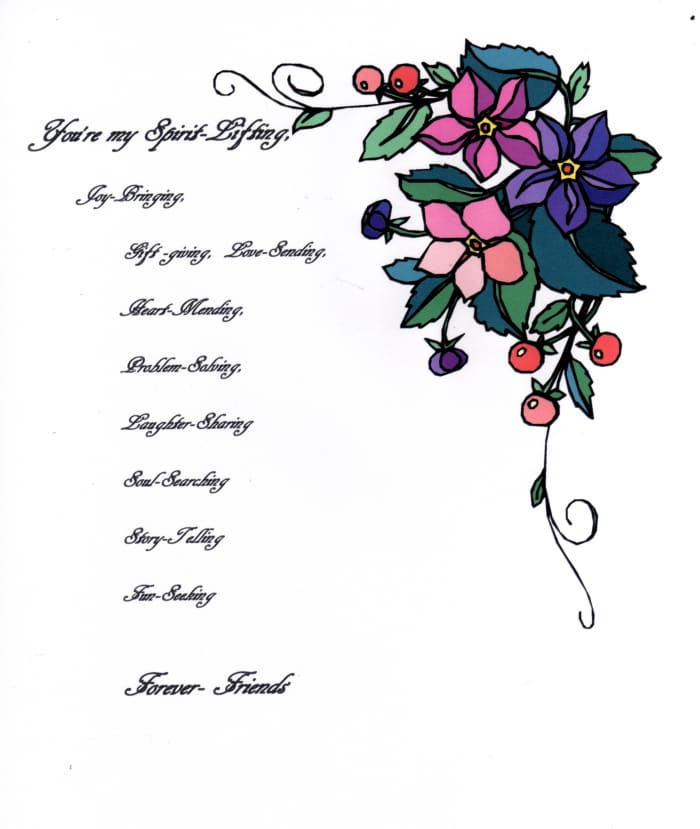 You're my Spirit-Lifting,
Joy-Bringing,
Gift -giving, Love-Sending,
Heart-Mending,
Problem-Solving,
Laughter-Sharing
Soul-Searching
Story-Telling
Fun-Seeking
Forever- Friends